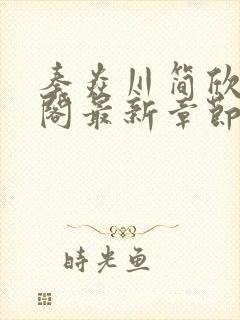 秦焱川简欣
阁最新章节
時光鱼